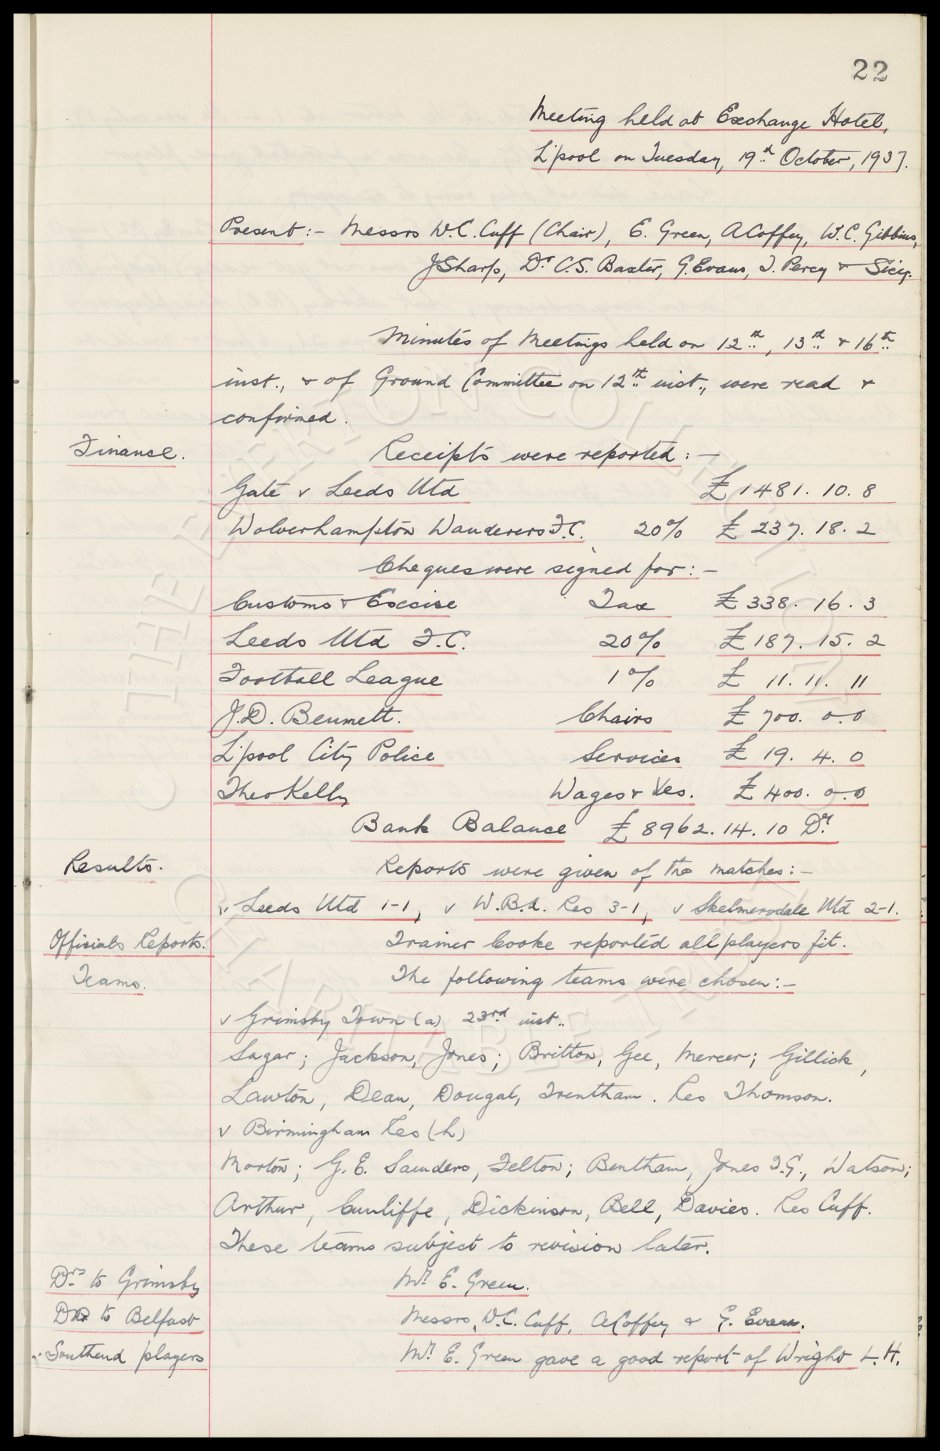 22
Meeting held at Exchange Hotel,
L'pool on Tuesday, 19th October, 1937.
Present:- Messrs W.C. Cuff (Chair), E. Green, A Coffey, W.C. Gibbins,
J Sharp, Dr C.S. Baxter, G. Evans, T. Percy & Secy.
Minutes of Meetings held on 12th, 13th & 16th
inst., & of Ground Committee on 12th inst., were read &
confirmed.
Finance. Receipts were reported:-
Gate v Leeds Utd £1481. 10. 8
Wolverhampton Wanderers F.C. 20% £ 237. 18. 2
Cheques were signed for:-
Customs & Excise Tax £338. 16. 3
Leeds Utd F.C. 20% £187. 15. 2
Football League 1% £ 11. 11. 11
J.D. Bennett. Chairs £700. 0.0
L'pool City Police Services £ 19. 4. 0
Theo Kelly Wages & Xes. £400. 0.0
Bank Balance £8962. 14. 10 Dr
Results. Reports were given of the matches:-
v Leeds Utd 1-1, v W.B.A. Res 3-1, v Skelmersdale Utd 2-1.
Officials Reports. Trainer Cooke reported all players fit.
Teams. The following teams were chosen:-
v Grimsby Town (a) 23rd inst..
Sagar; Jackson, Jones; Britton, Gee, Mercer; Gillick,
Lawton, Dean, Dougal, Trentham. Res Thomson.
v Birmingham Res (h)
Morton; G.E. Saunders, Felton; Bentham, Jones T.G., Watson;
Arthur, Cunliffe, Dickinson, Bell, Davies. Res Cuff.
These teams subject to revision later.
Drs to Grimsby Mr E. Green.
Do to Belfast Messrs W.C. Cuff, A Coffey & G. Evans.
Southend players Mr E. Green gave a good report of Wright L.H.
THE EVERTON COLLECTION
CHARITABLE TRUST